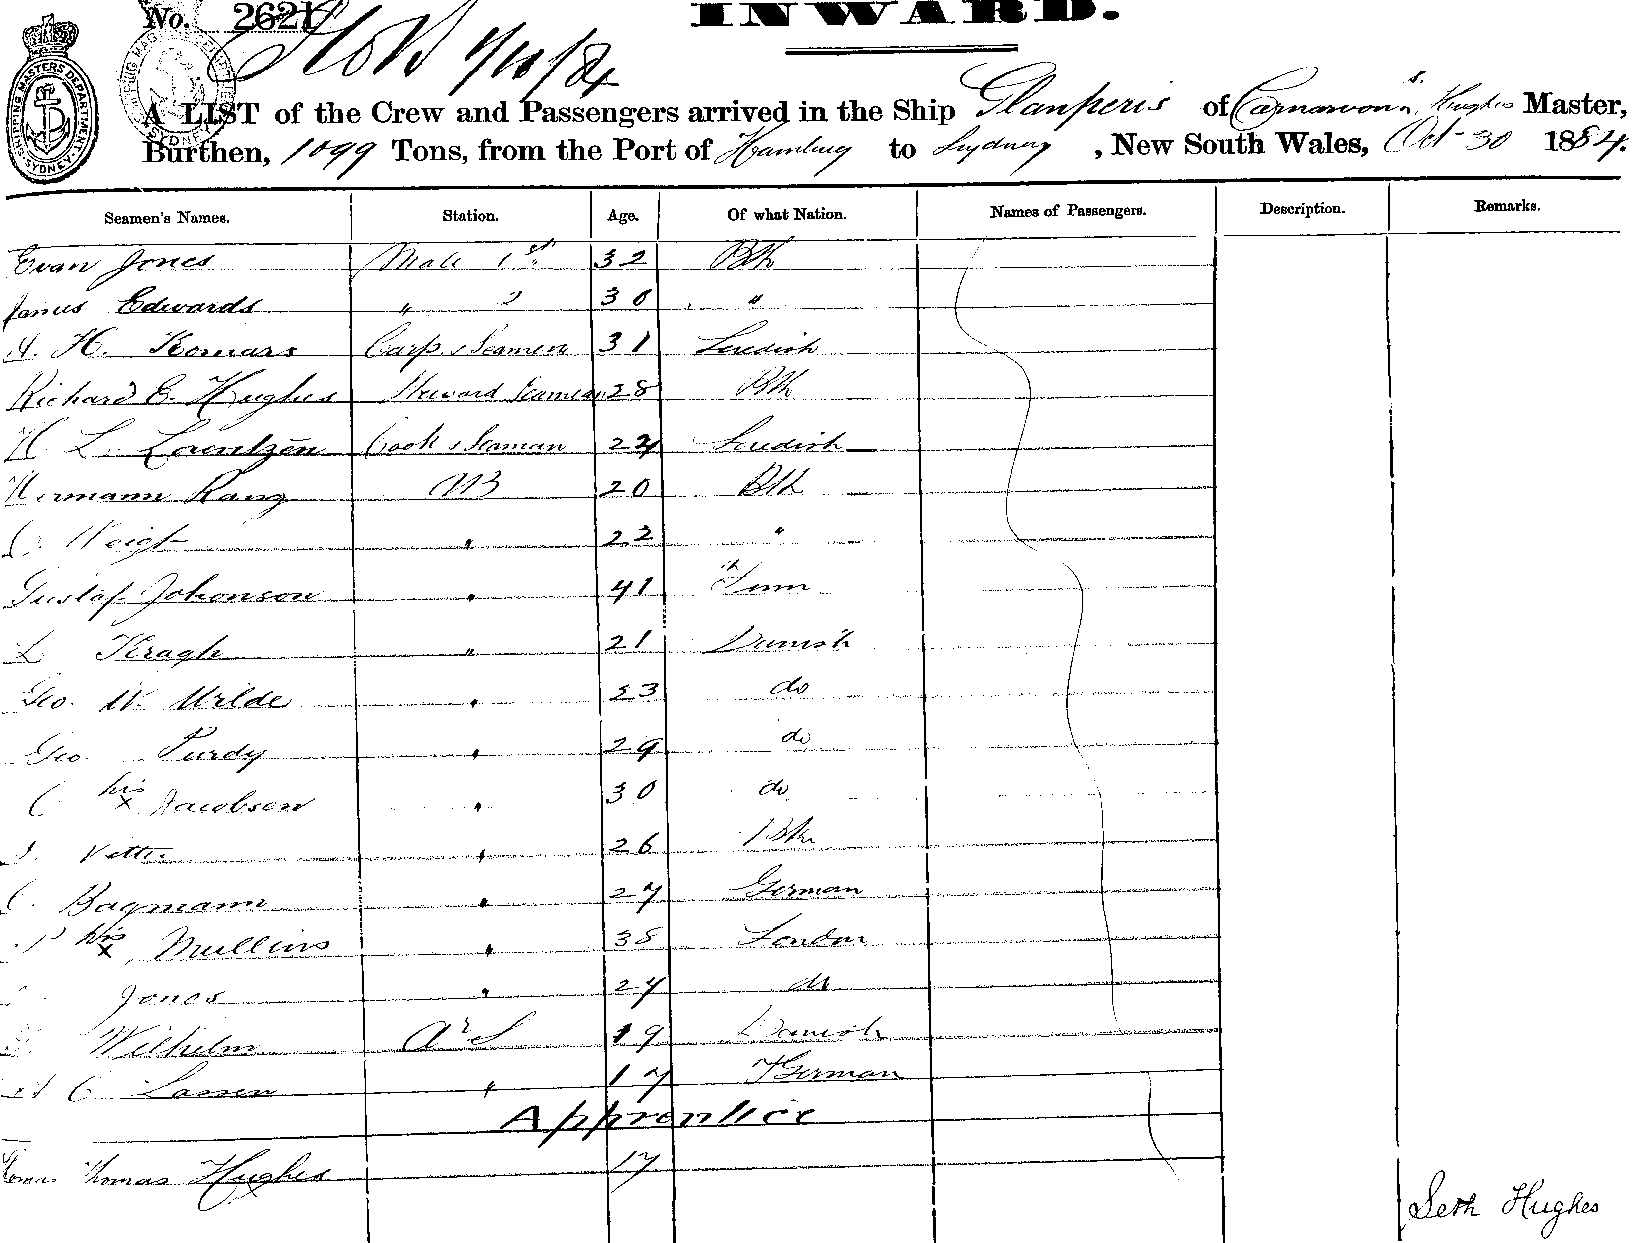 No. 2621
INWARD.
SHIPPING MASTERS DEPARTMENT SYDNEY
A LIST of the Crew and Passengers arrived in the Ship Glanperis of Carnarvon S. Hughes Master,
Burthen, 1099 Tons, from the Port of Hamburg to Sydney, New South Wales, Oct 30 1884.
Seamen's Names. Station. Age. Of what Nation. Names of Passengers. Description. Remarks.
Evan Jones Mate 1st 32 Bth
James Edwards " 2 30 "
A. H. Komars Carp & Seamen 31 Swedish
Richard E. Hughes Steward Seaman 28 Bth
H L. Lorentzen Cook & Seaman 22 Swedish
Hermann Rang AB 20 Bth
Voigt " 22 "
Gustaf Johonson " 41 Finn
L Kragh " 21 Danish
Geo. W. Wilde " 23 do
Geo. Purdy " 29 do
C his x Jacobsen " 30 do
" 26 Bth
C. Bagmann " 27 German
P his x Mullins " 38 London
Jones " 27 do
Wilhelm OrS 19 Danish
C Lassen " 17 German
Apprentice
Thomas Hughes 17
Seth Hughes